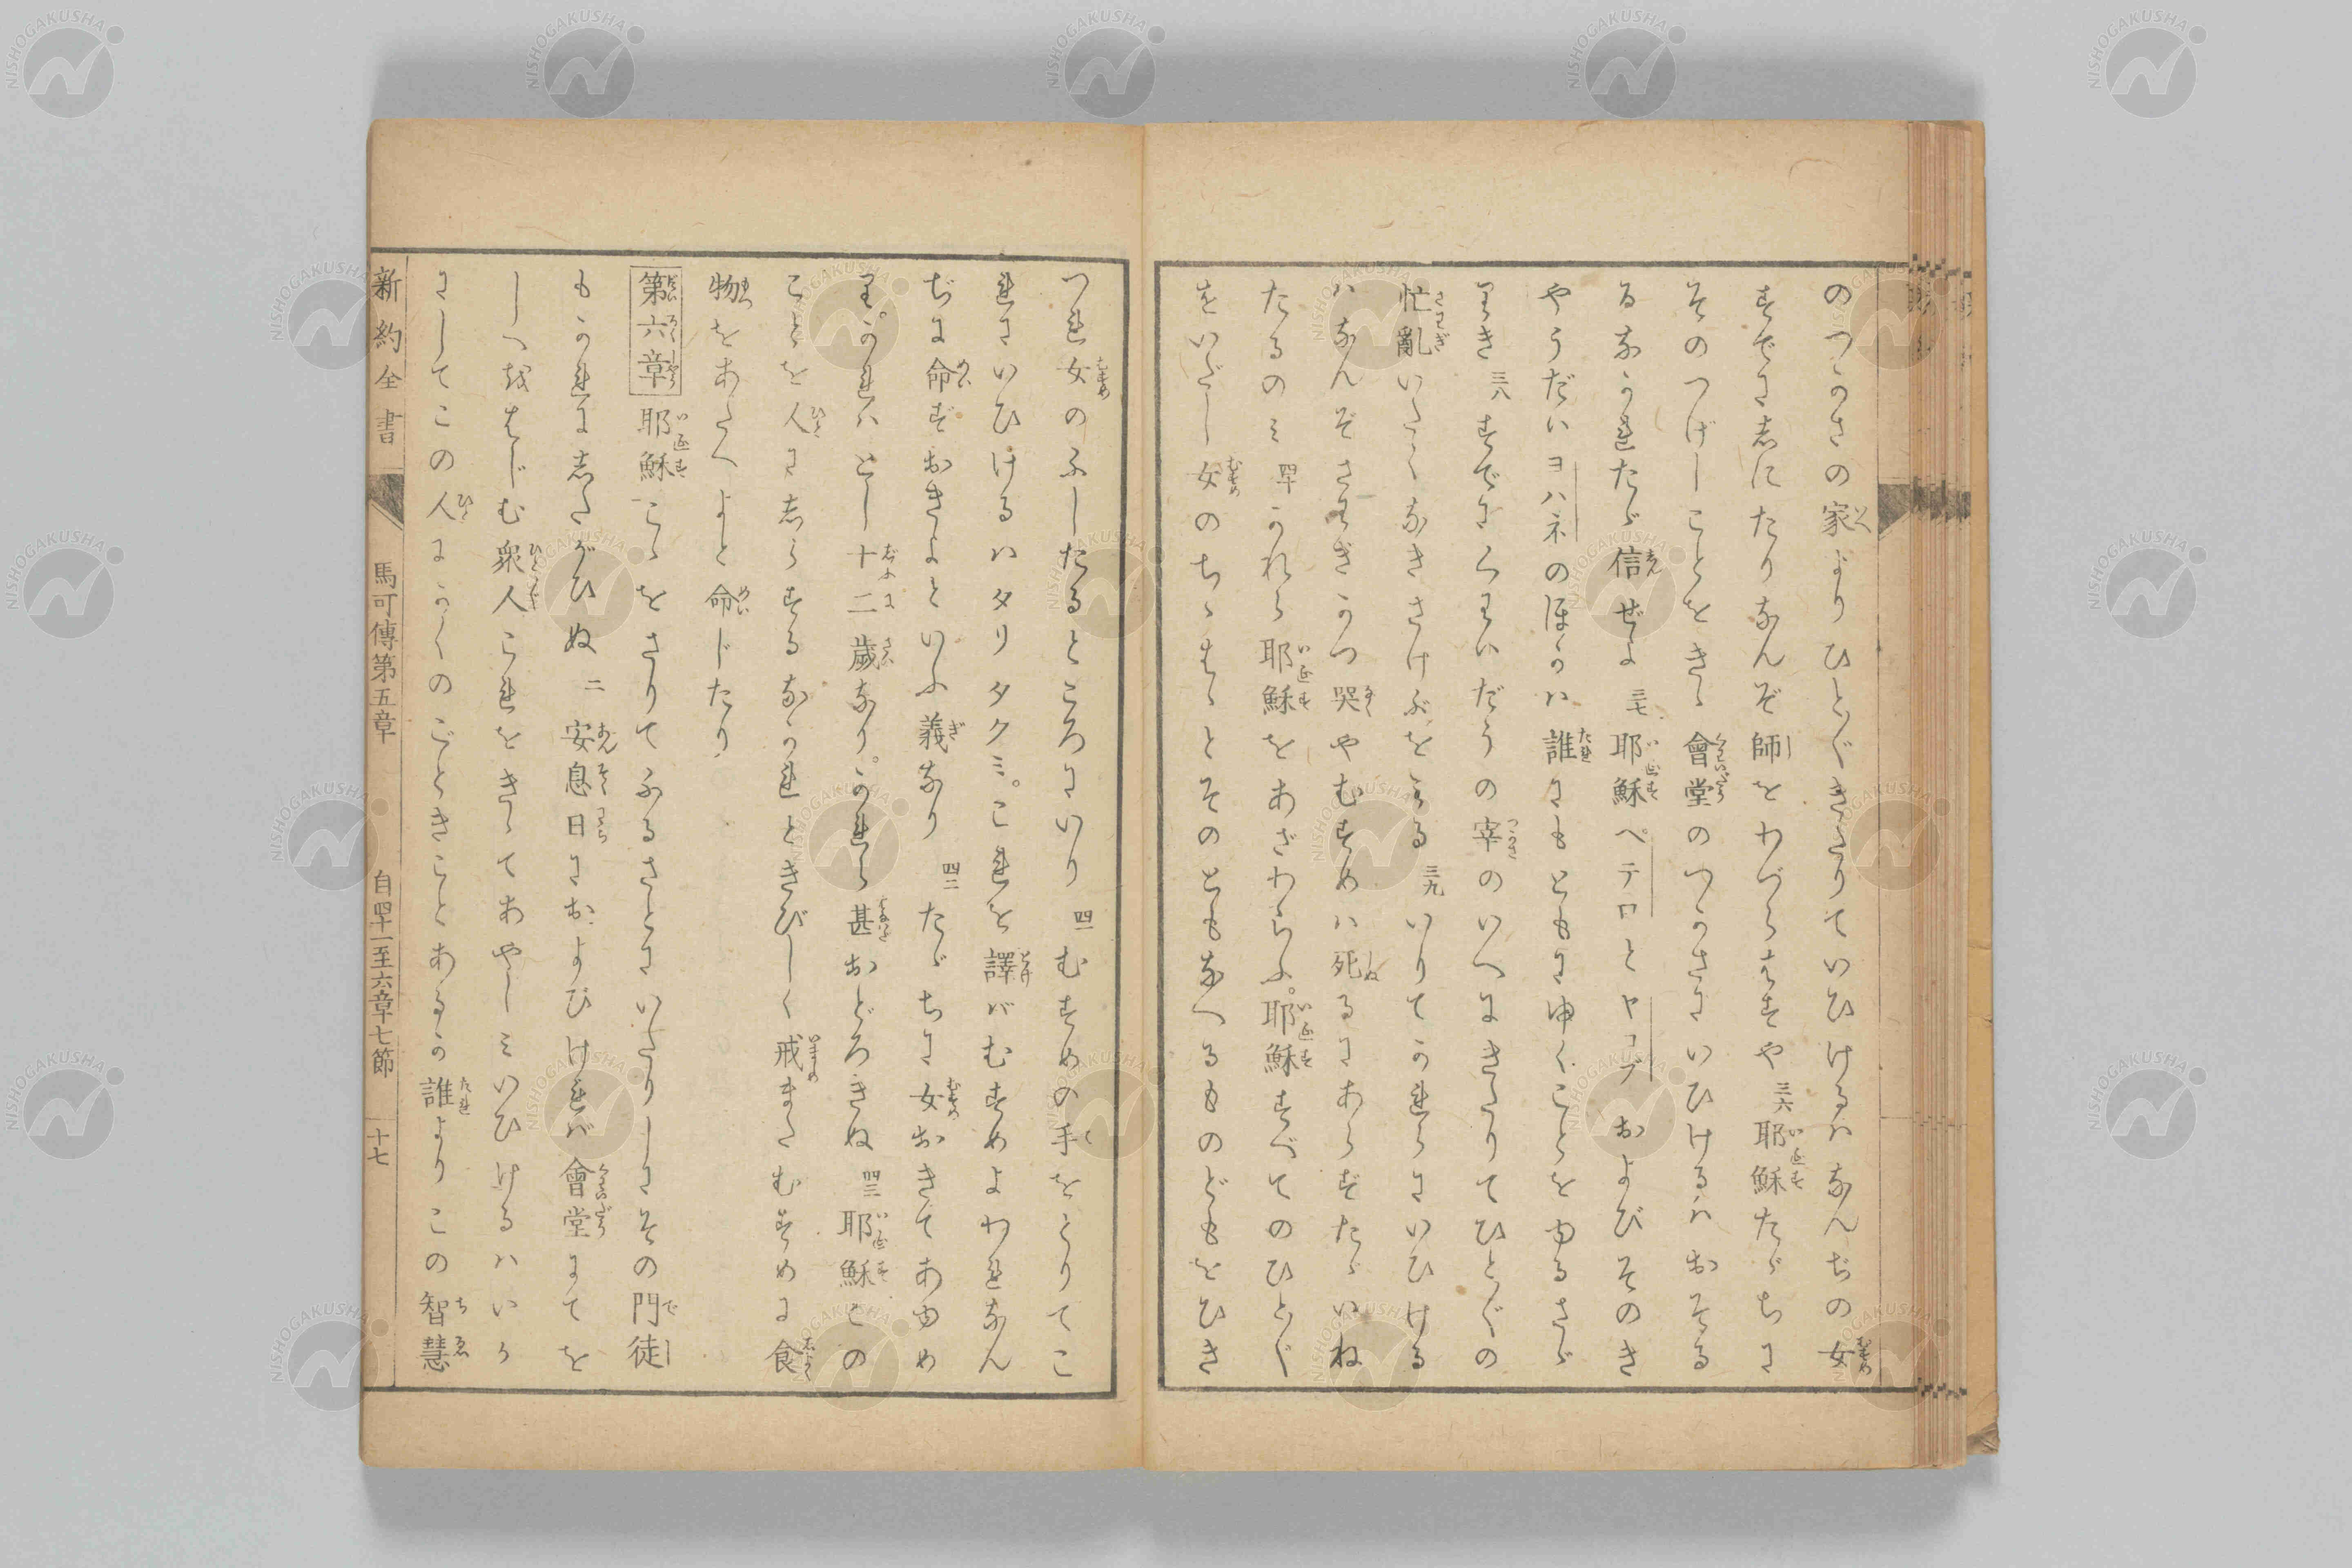 のつかさの家よりひと〴〵きたりていひけるハなんぢの女
すでに志にたりなんぞ師をわづらはすや 三六 耶穌たゞちに
そのつげしことをきゝ會堂のつかさにいひけるハおそる
るなかれたゞ信ぜよ 三七 耶穌ペテロとヤコブおよびそのき
やうだいヨハネのほかハ誰にもともにゆくことをゆるさゞ
りき 三八 すでにくわいだうの宰のいへにきたりてひと〴〵の
忙亂いたくなきさけぶをみる 三九 いりてかれらにいひける
ハなんぞさわぎかつ哭やむすめハ死るにあらずたゞいね
たるのミ 四十 かれら耶穌をあざわらふ。耶穌すべてのひと〴〵
をいだし女のちゝはゝとそのともなへるものどもをひき
つれ女のふしたるところにいり 四一 むすめの手をとりてこ
れにいひけるハタリタクミ。これを譯バむすめよわれなん
ぢに命ずおきよといふ義なり 四二 たゞちに女おきてあゆめ
り。かれハとし十二歲なり。かれら甚おどろきぬ 四三 耶穌この
ことを人に志らするなかれときびしく戒またむすめに食
物をあたへよと命じたり
第六章 耶穌こゝをさりてふるさとにいたりしにその門徒
もかれに志たがひぬ 二 安息日におよびけれバ會堂にてを
しへはじむ衆人これをきゝてあやしミいひけるハいか
にしてこの人にかくのごときことあるか誰よりこの智慧
新約全書 馬可傳第五章 自四十一至六章七節 十七